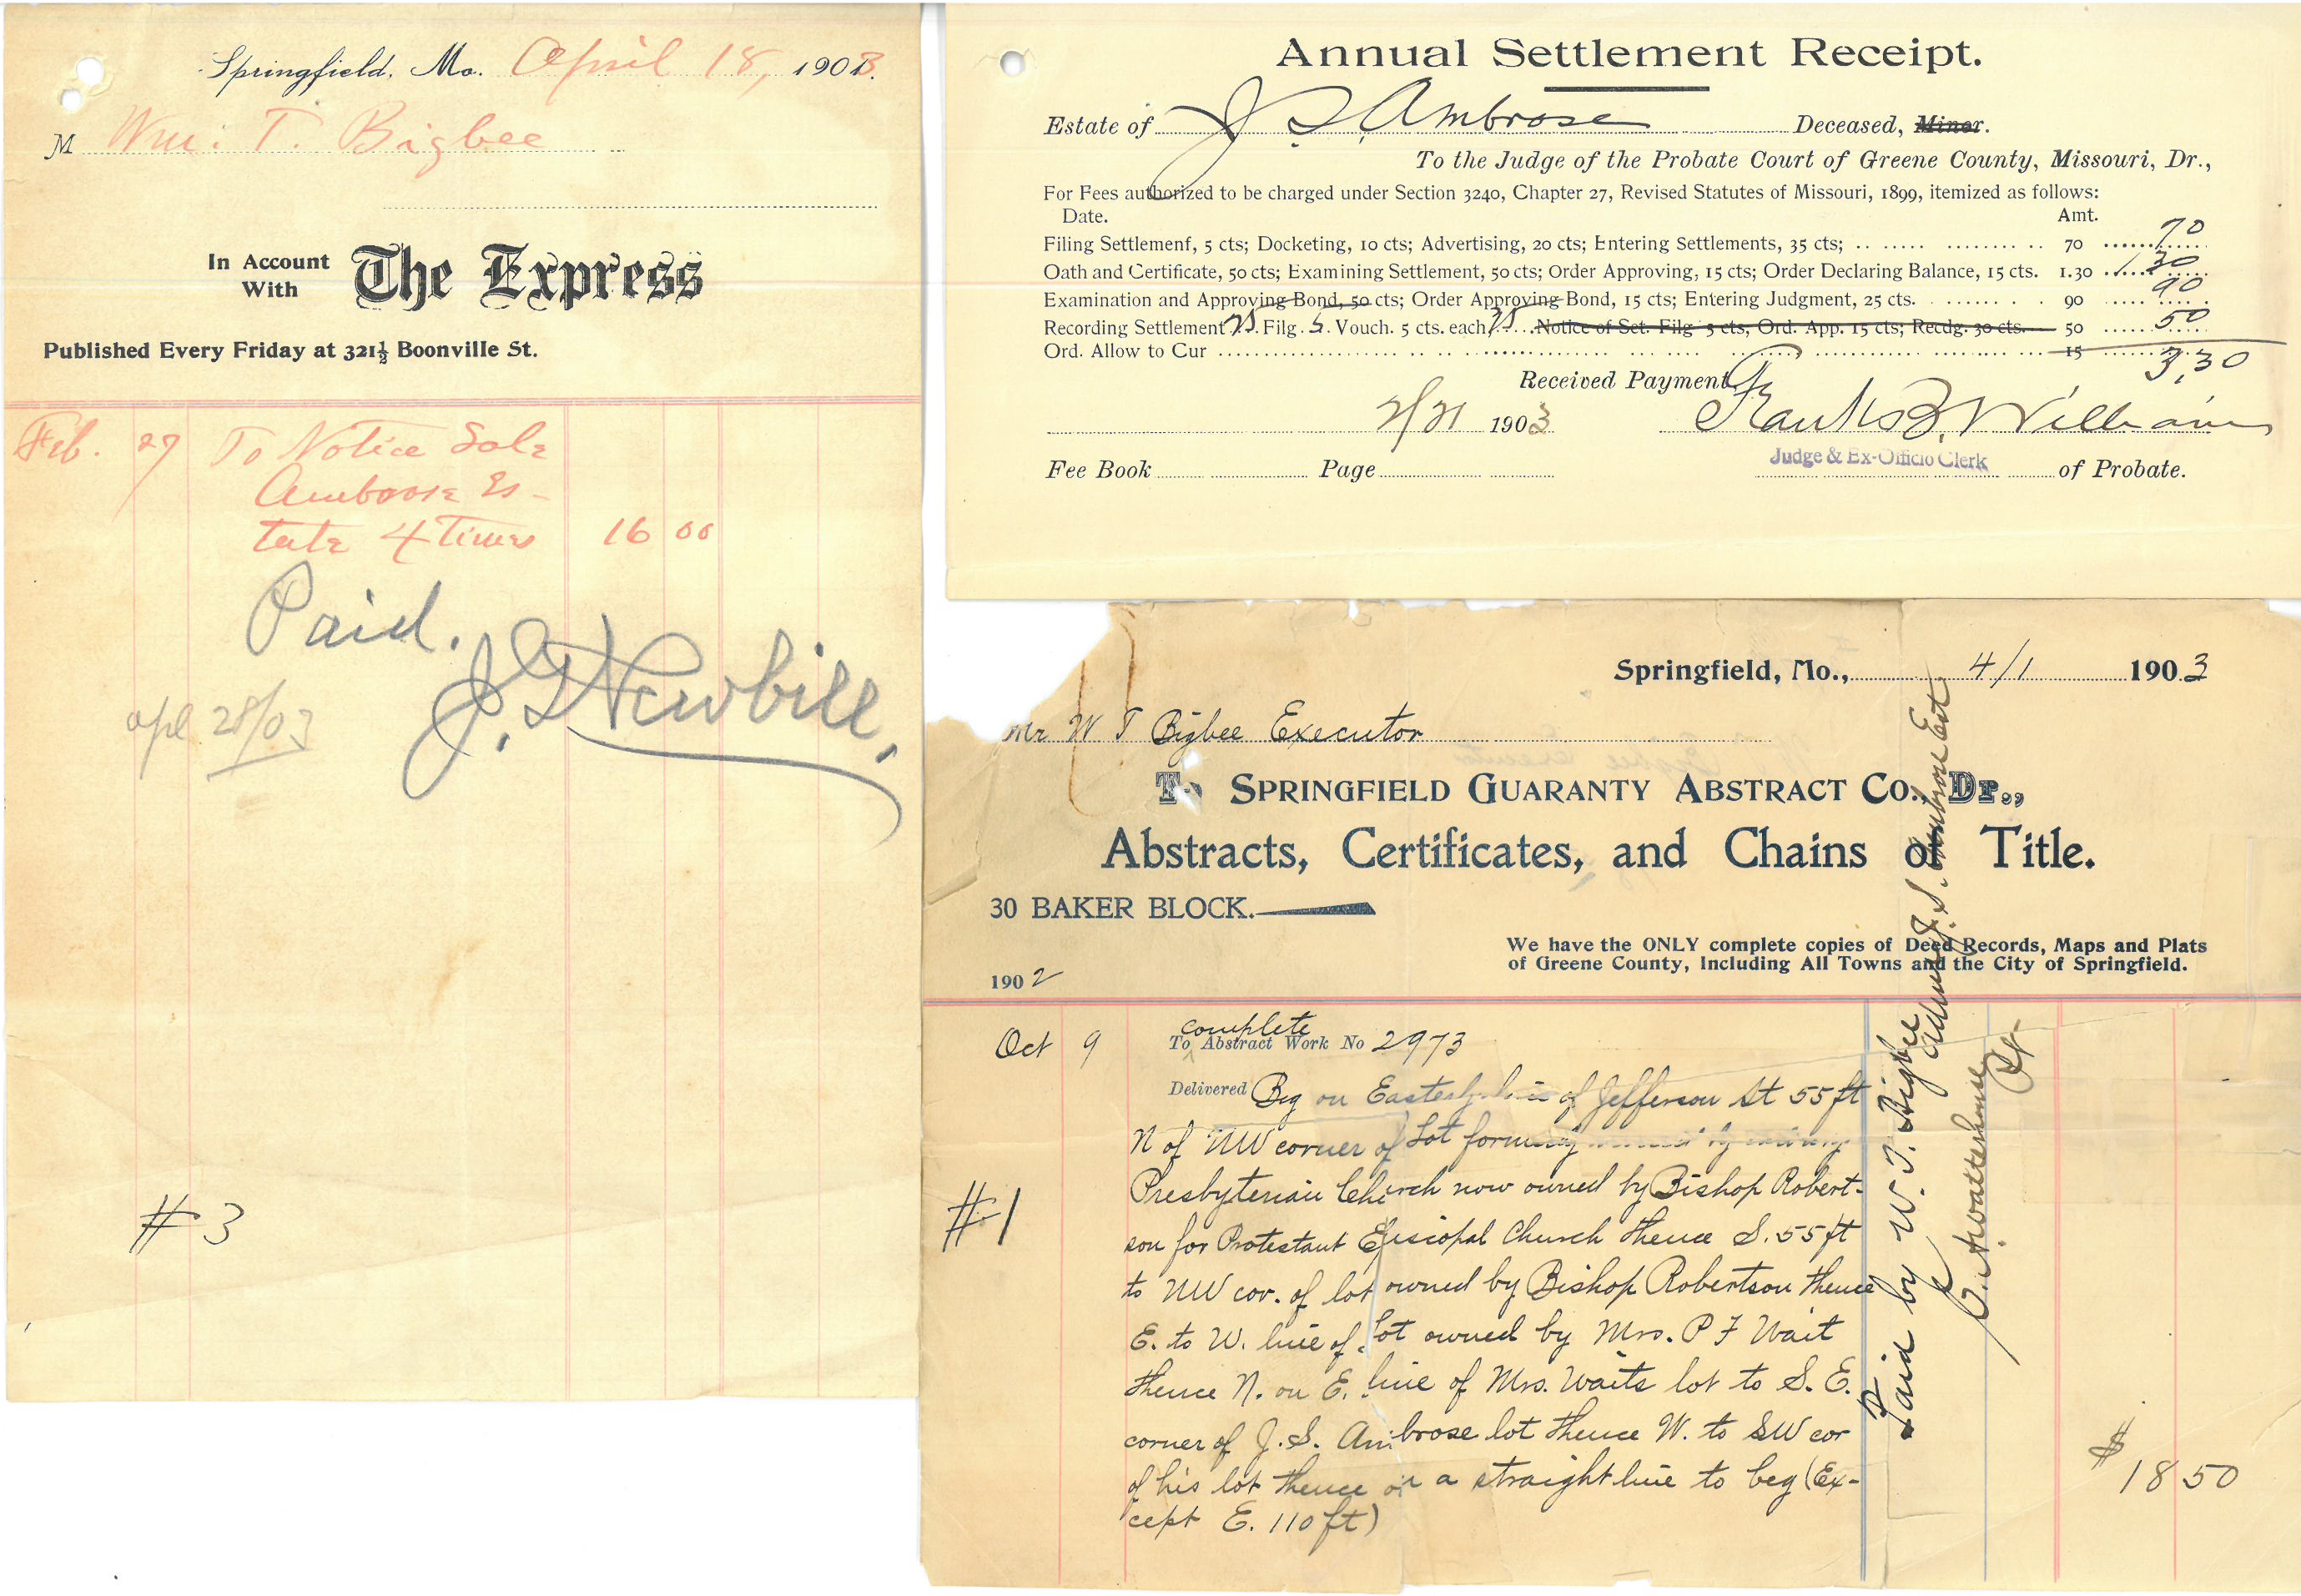 Springfield, Mo. April 18, 1903.
M Wm: T. Bigbee
In Account
With
The Express
Published Every Friday at 321½ Boonville St.
Feb. 27 To Notice Sale
Ambrose Es-
tate 4 Times 16 00
Paid.
J. D. Newbill.
apl 28/03
# 3
Annual Settlement Receipt.
Estate of J S Ambrose Deceased, Minor.
To the Judge of the Probate Court of Greene County, Missouri, Dr.,
For Fees authorized to be charged under Section 3240, Chapter 27, Revised Statutes of Missouri, 1899, itemized as follows:
Date. Amt.
Filing Settlemenf, 5 cts; Docketing, 10 cts; Advertising, 20 cts; Entering Settlements, 35 cts; 70 70
Oath and Certificate, 50 cts; Examining Settlement, 50 cts; Order Approving, 15 cts; Order Declaring Balance, 15 cts. 1.30 1 30
Examination and Approving Bond, 50 cts; Order Approving Bond, 15 cts; Entering Judgment, 25 cts. 90 90
Recording Settlement 25 Filg. 5 Vouch. 5 cts. each 25 Notice of Set. Filg 5 cts, Ord. App. 15 cts; Recdg. 30 cts. 50 50
Ord. Allow to Cur 15
3,30
Received Payment
2/21 1903 Frank B. Williams
Judge & Ex-Officio Clerk
Fee Book Page of Probate.
Springfield, Mo., 4/1 1903
Mr W T Bigbee Executor
To SPRINGFIELD GUARANTY ABSTRACT CO., Dr.,
Abstracts, Certificates, and Chains of Title.
30 BAKER BLOCK.
We have the ONLY complete copies of Deed Records, Maps and Plats
of Greene County, Including All Towns and the City of Springfield.
1902
complete
Oct 9 To Abstract Work No 2973
Delivered Beg on Easterly line of Jefferson St 55 ft
N of NW corner of Lot formerly owned by
Presbyterian Church now owned by Bishop Robert-
son for Protestant Episcopal Church thence S. 55 ft
to NW cor. of lot owned by Bishop Robertson thence
E. to W. line of Lot owned by Mrs. P F Wait
thence N. on E. line of Mrs. Waits lot to S. E.
corner of J. S. Ambrose lot thence W. to SW cor
of his lot thence on a straight line to beg (Ex-
cept E. 110 ft)
$ 18 50
#1
Paid by W. T. Bigbee
Admr J. S. Ambrose Est.